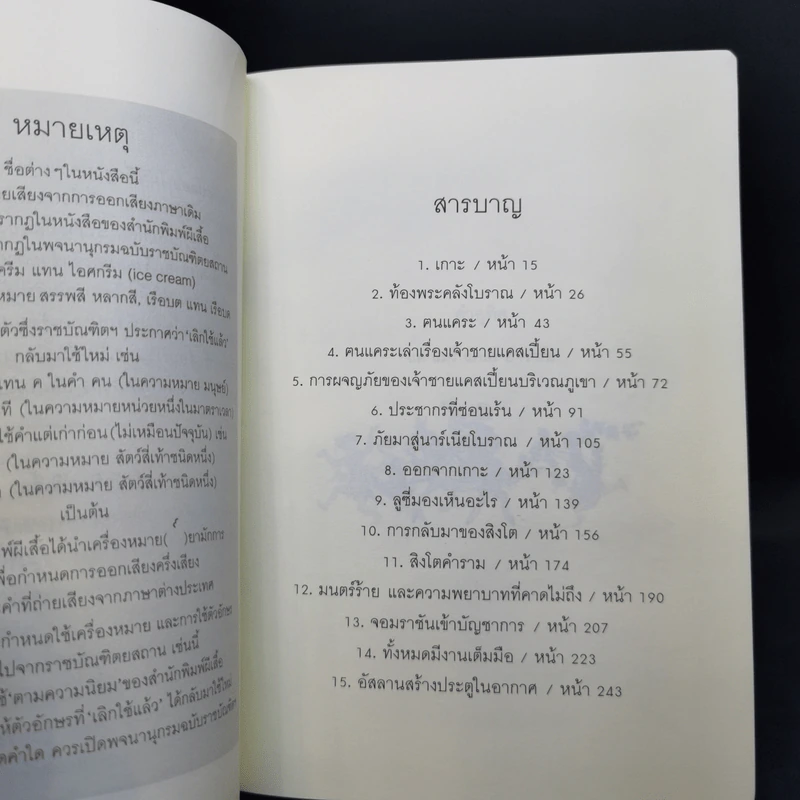 หมายเหตุ
ชื่อต่าง ๆในหนังสือนี้
ยเสียงจากการออกเสียงภาษาเดิม
รากฏในหนังสือของสำนักพิมพ์ผีเสื้อ
ากฏในพจนานุกรมฉบับราชบัณฑิตยสถาน
ครีม แทน ไอศกรีม (ice cream)
หมาย สรรพสี หลากสี, เรือบต แทน เรือบด
ตัวซึ่งราชบัณฑิตฯ ประกาศว่า'เลิกใช้แล้ว'
กลับมาใช้ใหม่ เช่น
แทน ค ในคำ คน (ในความหมาย มนุษย์)
ที (ในความหมายหน่วยหนึ่งในมาตราเวลา)
ใช้คำแต่เก่าก่อน (ไม่เหมือนปัจจุบัน) เช่น
(ในความหมาย สัตว์สี่เท้าชนิดหนึ่ง)
(ในความหมาย สัตว์สี่เท้าชนิดหนึ่ง)
เป็นต้น
พ์ผีเสื้อได้นำเครื่องหมาย( ๎ )ยามักการ
พื่อกำหนดการออกเสียงครึ่งเสียง
คำที่ถ่ายเสียงจากภาษาต่างประเทศ
กำหนดใช้เครื่องหมาย และการใช้ตัวอักษร
ไปจากราชบัณฑิตยสถาน เช่นนี้
ช้'ตามความนิยม'ของสำนักพิมพ์ผีเสื้อ
ห้ตัวอักษรที่'เลิกใช้แล้ว' ได้กลับมาใช้ใหม่
ดคำใด ควรเปิดพจนานุกรมฉบับราชบัณฑิตฯ
สารบาญ
1. เกาะ / หน้า 15
2. ท้องพระคลังโบราณ / หน้า 26
3. ฅนแคระ / หน้า 43
4. ฅนแคระเล่าเรื่องเจ้าชายแคสเปี้ยน / หน้า 55
5. การผจญภัยของเจ้าชายแคสเปี้ยนบริเวณภูเขา / หน้า 72
6. ประชากรที่ซ่อนเร้น / หน้า 91
7. ภัยมาสู่นาร์เนียโบราณ / หน้า 105
8. ออกจากเกาะ / หน้า 123
9. ลูซี่มองเห็นอะไร / หน้า 139
10. การกลับมาของสิงโต / หน้า 156
11. สิงโตคำราม / หน้า 174
12. มนตร์ร้าย และความพยาบาทที่คาดไม่ถึง / หน้า 190
13. จอมราชันเข้าบัญชาการ / หน้า 207
14. ทั้งหมดมีงานเต็มมือ / หน้า 223
15. อัสลานสร้างประตูในอากาศ / หน้า 243